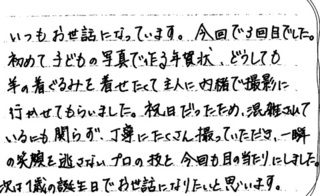 いつもお世話になっています。今回で3回目でした。
初めて子どもの写真で作る年賀状、どうしても
羊の着ぐるみを着せたくて主人に内緒で撮影に
行かせてもらいました。祝日だったため、混雑されて
いるにも関らず、丁寧にたくさん撮っていただき、一瞬
の笑顔を逃さないプロの技を今回も目の当たりにしました。
次は1歳の誕生日でお世話になりたいと思います。